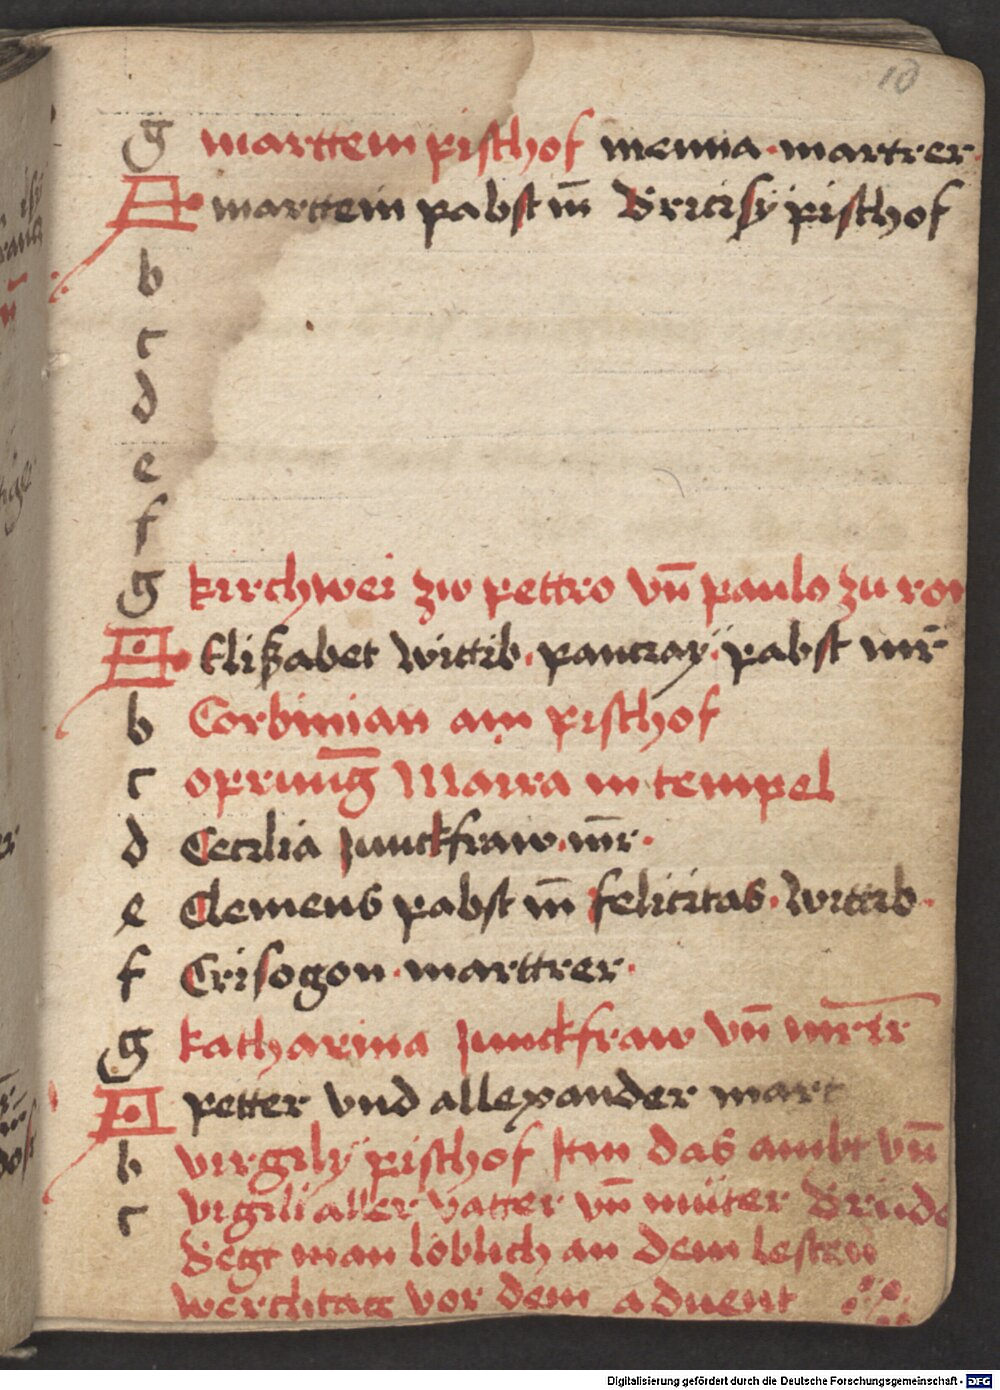 10
g marttein pischof menna · martrer
A martein pabst m̄ Bricisÿ pischof
b
c
d
e
f
g kirchwei zw pettro vn̄ paulo zu rom
A Elißabet wittib · pancray · pabst mr̄
b Corbinian ain pischof
c oprung Maria in tempel
d Cecilia Junckfraw · m̄r ·
e Clemens pabst m̄ felicitas · wittib ·
f Crisogon · marttrer ·
g katharina Junckfraw vn̄ mr̄rr
A petter vnd allexander mart
b virgily pischof Item das ambt vn̄
c vigili aller vatter vn̄ müter Brüde
Begt man löblich an dem lesten
werchtag vor dem aduent
Digitalisierung gefördert durch die Deutsche Forschungsgemeinschaft - DFG